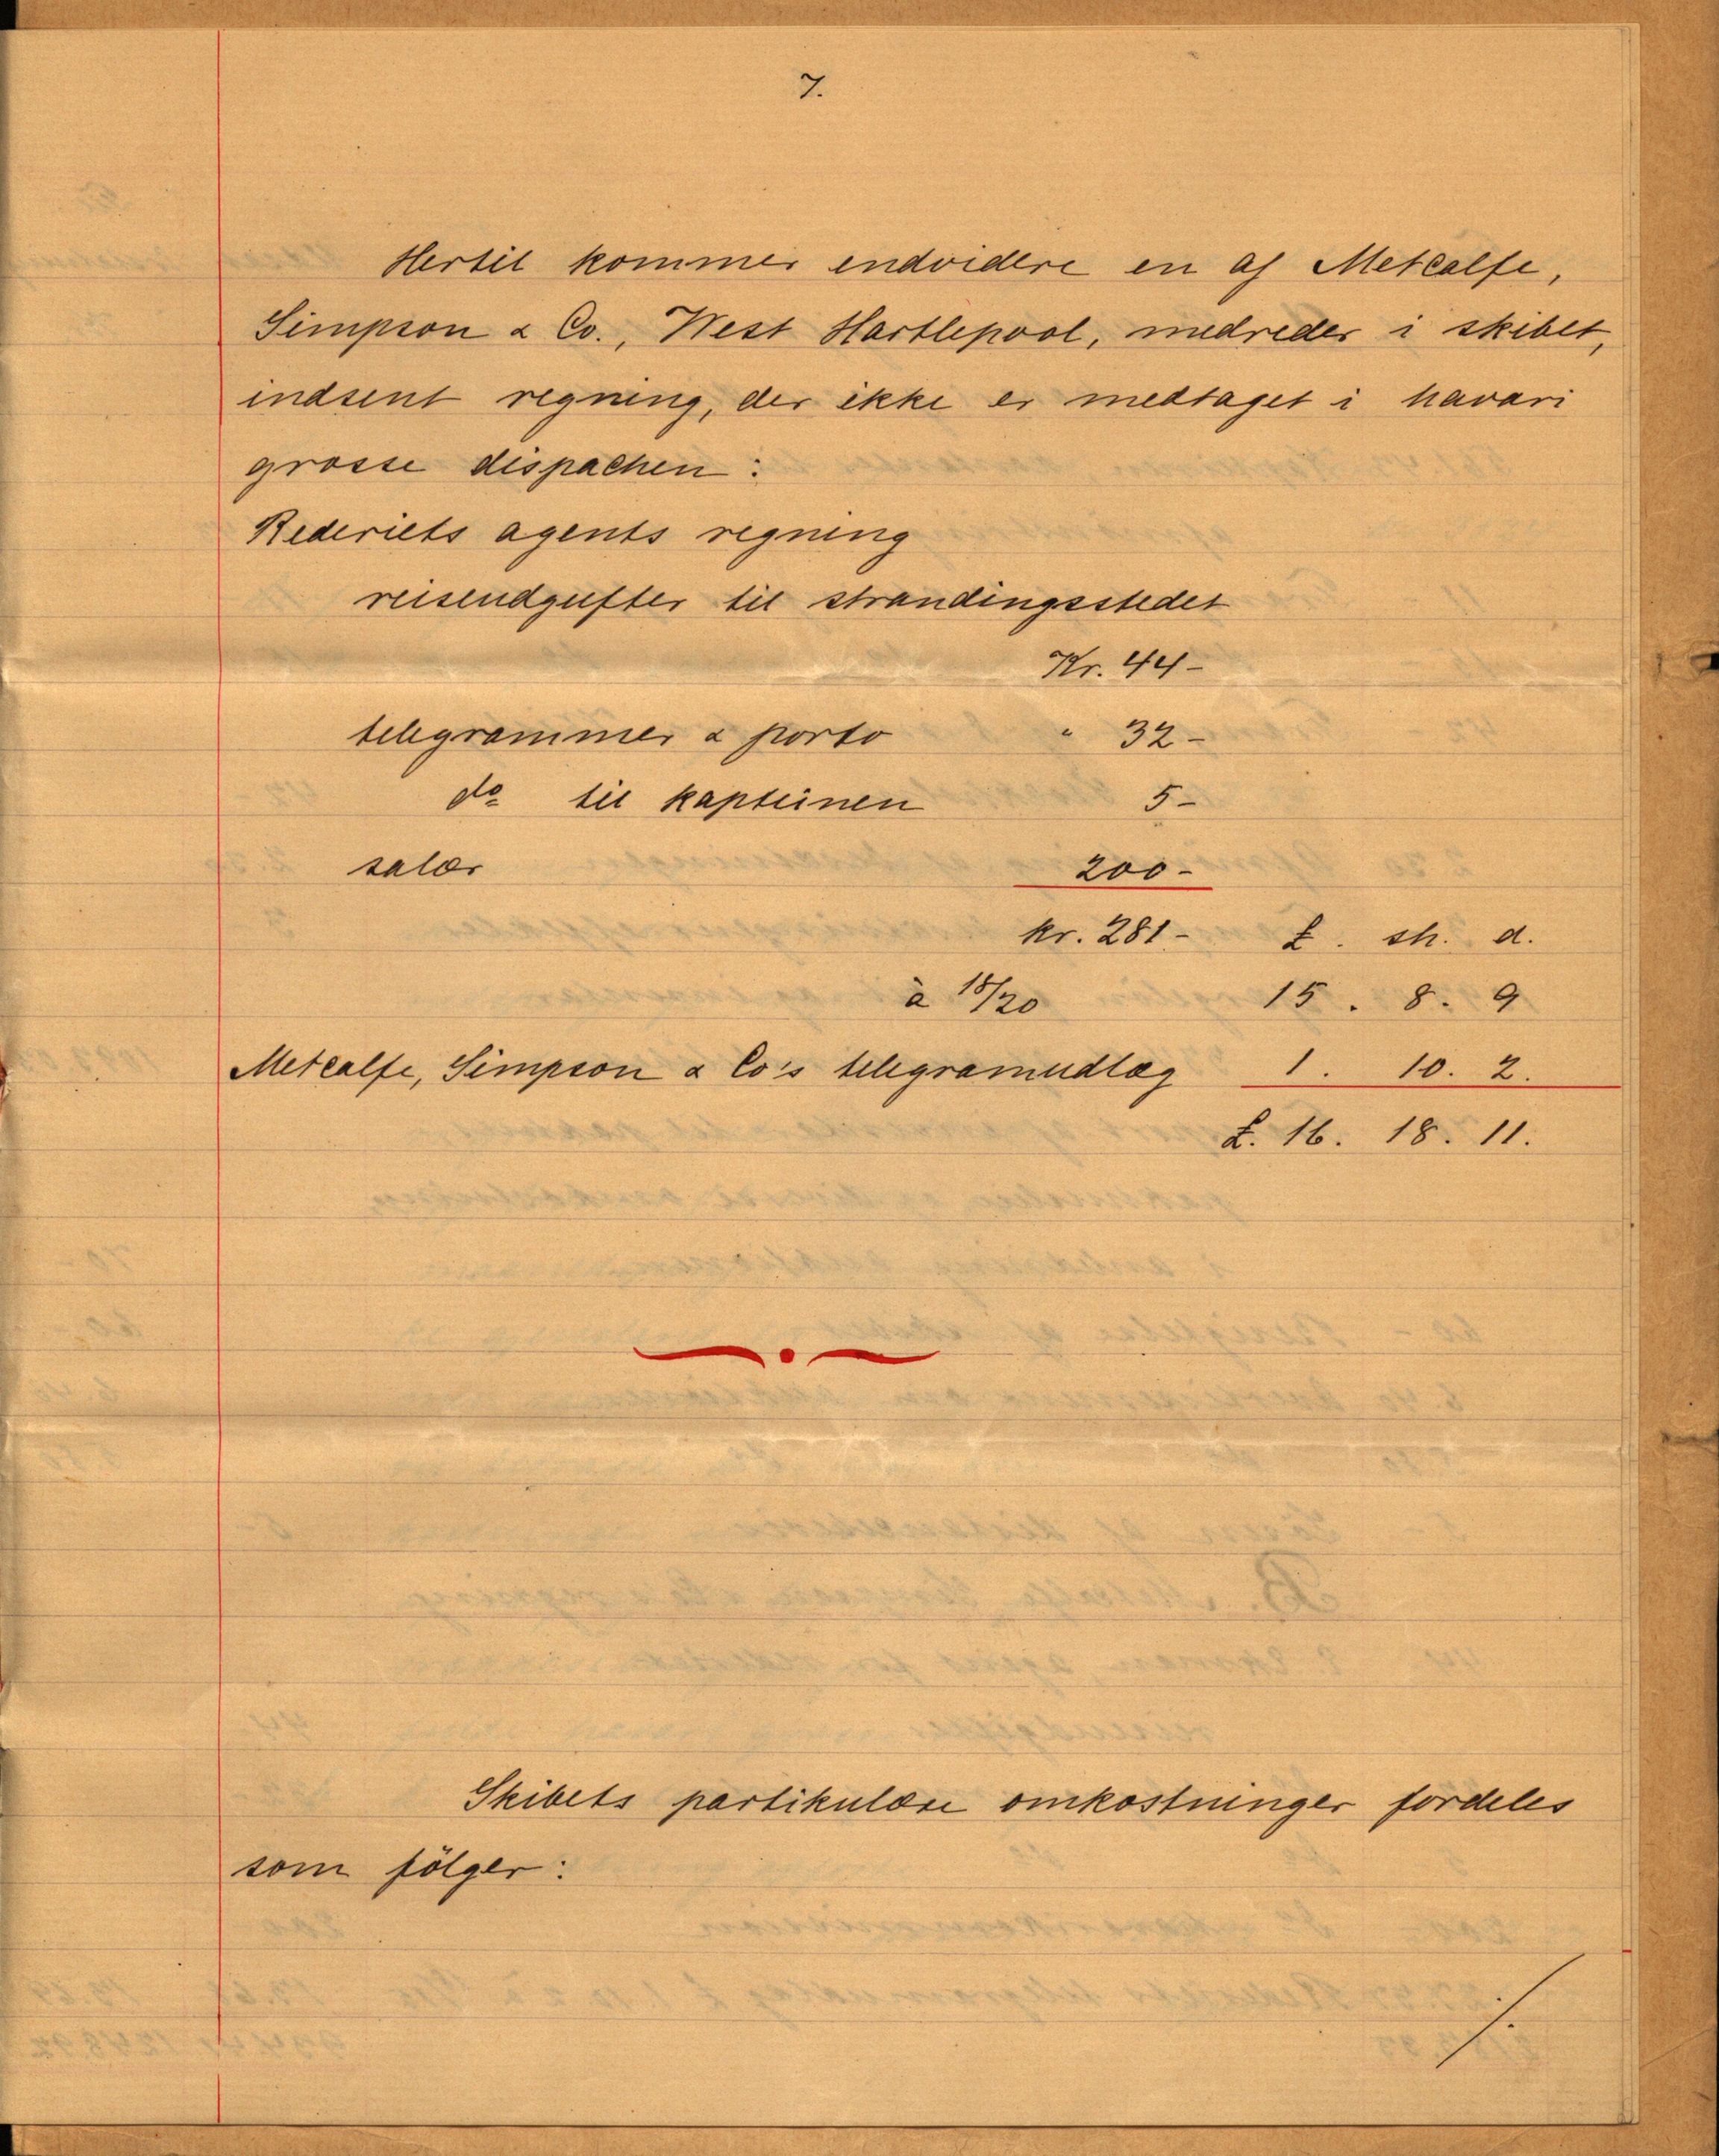 7.
Hertil kommer endvidere en af Metcalfe,
Simpson & Co., West Hartlepool, medreder i skibet,
indsent regning, der ikke er medtaget i havari
grosse dispachen:
Rederiets agents regning
reiseudgufter til strandingsstedet
Kr. 44-
telegrammer & porto " 32-
do til kapteinen 5-
salær 200-
kr. 281- £. sh. d.
à 18/20 15. 8. 9
Metcalfe, Simpson & Co's telegramudlæg 1. 10. 2.
£. 16. 18. 11.
Skibets partikulære omkostninger fordeles
som fölger:
/.